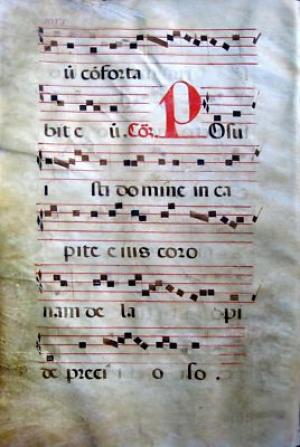 ū cōforta
bit e ū. Cōr. Posu
i sti domine in ca
pite eius coro
nam de la pi
de preci o so.